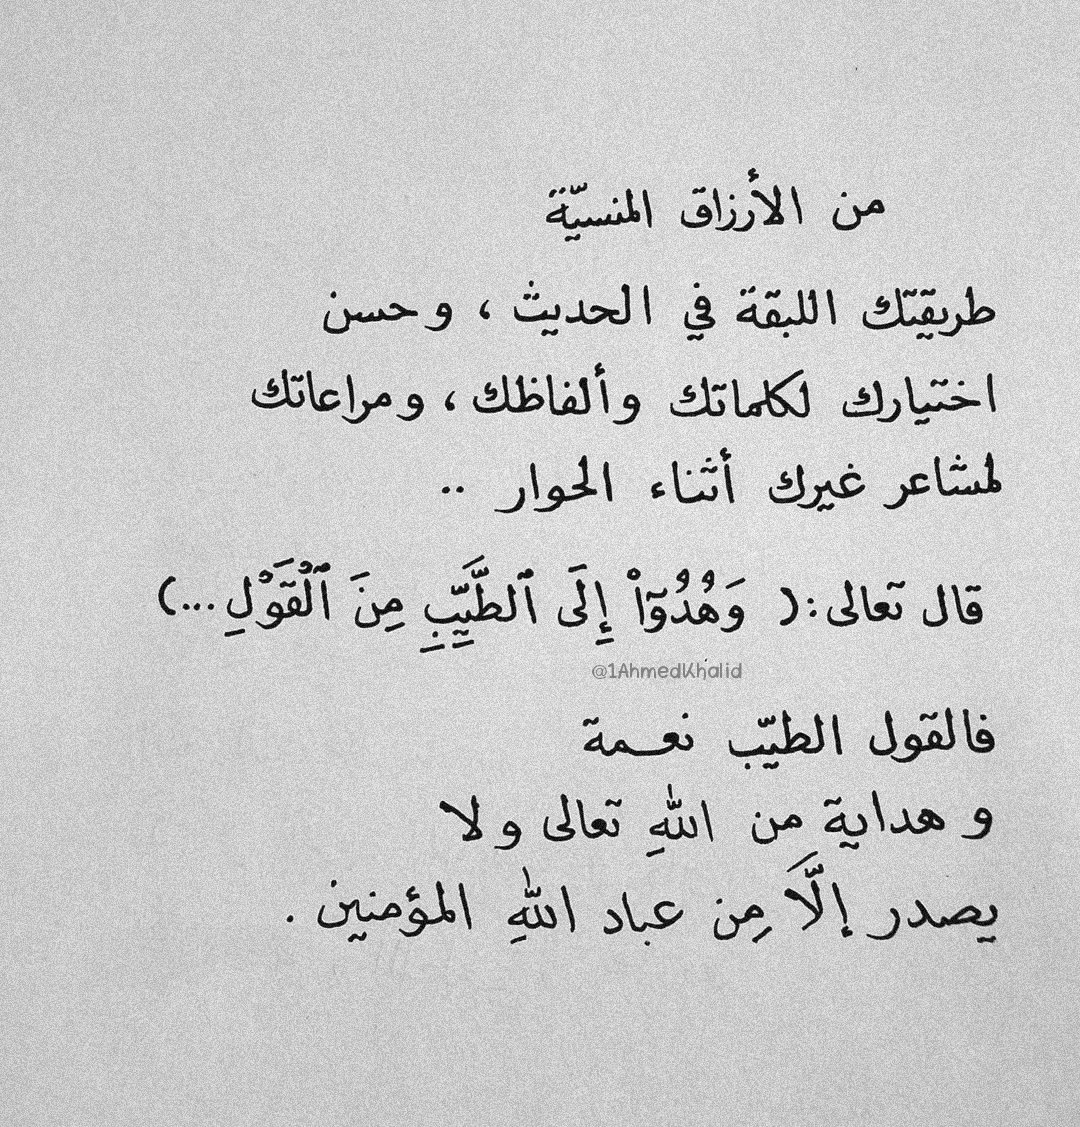 من الأرزاق المنسيّة
طريقتك اللبقة في الحديث ، و حسن
اختيارك لكلماتك وألفاظك ، و مراعاتك
لمشاعر غيرك أثناء الحوار ..
قال تعالى :( وَهُدُوٓاْ إِلَى ٱلطَّيِّبِ مِنَ ٱلْقَوْلِ ...)
@1AhmedKhalid
فالقول الطيّب نعـمة
و هداية من اللهِ تعالى و لا
يصدر إلَّا مِن عباد اللهِ المؤمنين .